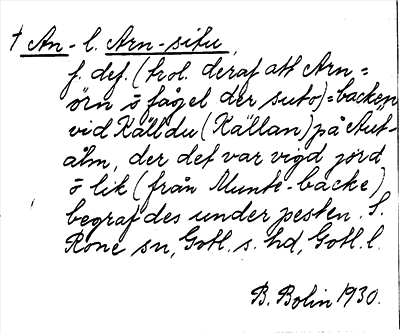 † An- l. Arn-situ,
f. def. (trol. deraf att Arn=
örn ō fågel der suto)=backen
vid Källdu (Källan) på Aut-
alm, der det var vigd jord
ō lik (från Munte-backe)
begrafdes under pesten. S.
Rone sn, Gotl. s. hd, Gotl. l.
B. Bolin 1930.